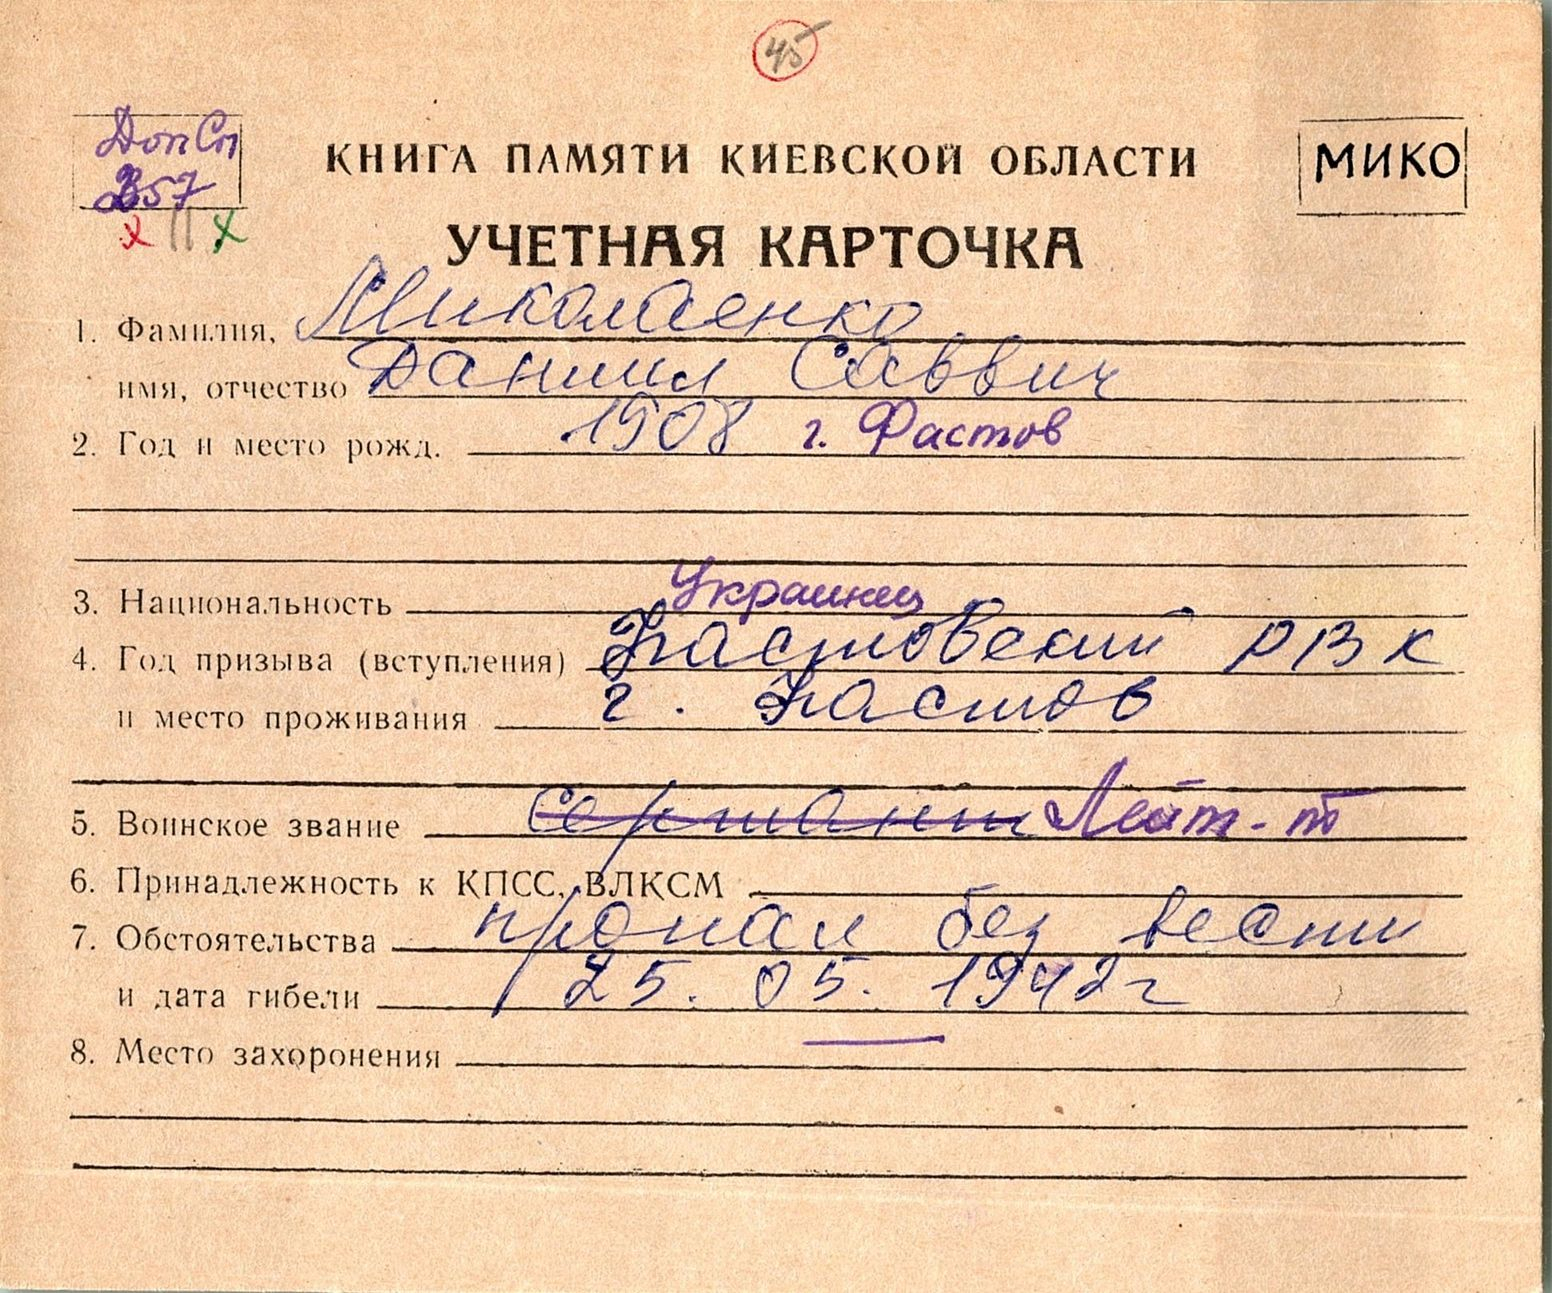 45
ДопСп
КНИГА ПАМЯТИ КИЕВСКОЙ ОБЛАСТИ
МИКО
357
х II х
УЧЕТНАЯ КАРТОЧКА
1. Фамилия, Миколаенко
имя, отчество Даниил Саввич
2. Год и место рожд. 1908 г. Фастов
3. Национальность Украинец
4. Год призыва (вступления) Фастовский РВК
и место проживания г. Фастов
5. Воинское звание Сержант Лейт-т
6. Принадлежность к КПСС, ВЛКСМ
7. Обстоятельства пропал без вести
и дата гибели 25. 05. 1942 г
8. Место захоронения